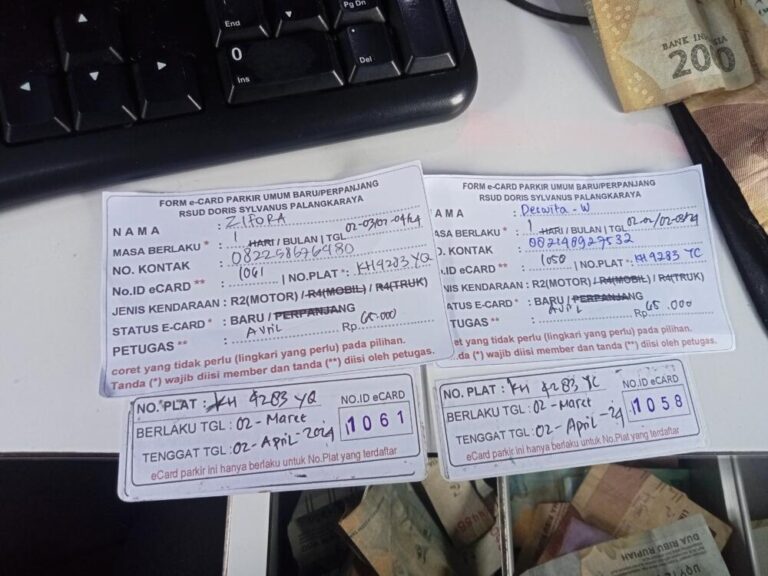 End
Pg Dn
0
Ins
.
Del
BANK INDONESIA
200
FORM e-CARD PARKIR UMUM BARU/PERPANJANG
RSUD DORIS SYLVANUS PALANGKARAYA
NAMA : ZIFORA
MASA BERLAKU * : 1 HARI / BULAN | TGL 02-03/02-04/24
NO. KONTAK : 082258676480
No.ID eCARD** : 1061 | NO.PLAT*: KH 4283 YQ
JENIS KENDARAAN : R2(MOTOR) / R4(MOBIL) / R4(TRUK)
STATUS E-CARD * : BARU / PERPANJANG
PETUGAS ** : Avril Rp. 65.000
coret yang tidak perlu (lingkari yang perlu) pada pilihan.
Tanda (*) wajib diisi member dan tanda (**) diisi oleh petugas.
NO. PLAT : KH 4283 YQ
NO.ID eCARD
BERLAKU TGL : 02 - Maret
1061
TENGGAT TGL : 02 - April - 2024
eCard parkir ini hanya berlaku untuk No.Plat yang terdaftar
FORM e-CARD PARKIR UMUM BARU/PERPANJANG
RSUD DORIS SYLVANUS PALANGKARAYA
AMA : - W
ASA BERLAKU * : 1 HARI / BULAN | TGL
O. KONTAK : 082148927532
o.ID eCARD** : | NO.PLAT*: KH 4283 YC
ENIS KENDARAAN : R2(MOTOR) / R4(MOBIL) / R4(TRUK)
TATUS E-CARD * : BARU / PERPANJANG
TUGAS ** : Avril Rp. 65.000
oret yang tidak perlu (lingkari yang perlu) pada pilihan.
anda (*) wajib diisi member dan tanda (**) diisi oleh petugas.
NO. PLAT : KH 4283 YC
NO.ID eCARD
BERLAKU TGL : 02 - Maret
1058
TENGGAT TGL : 02 - April - 24
eCard parkir ini hanya berlaku untuk No.Plat yang terdaftar
DUA RIBU RUPIAH